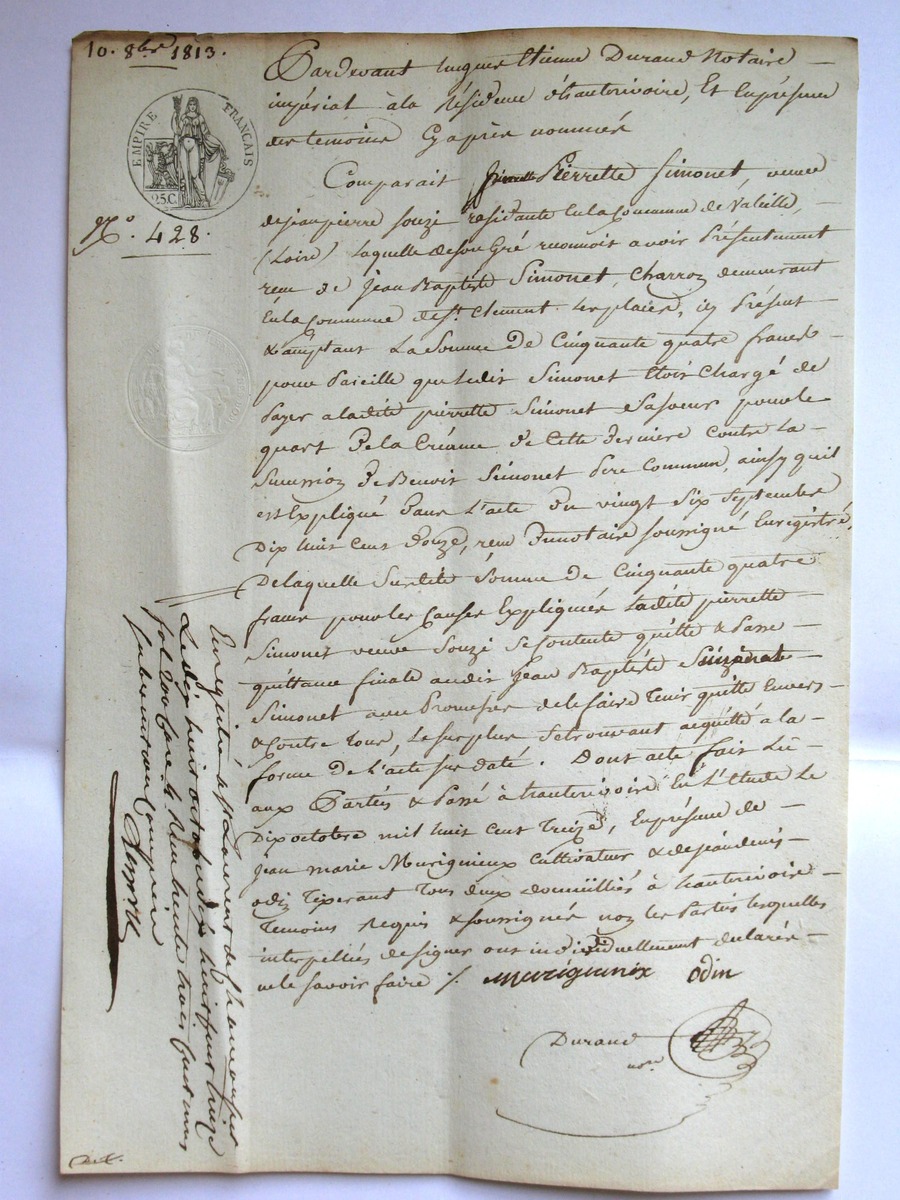 10. 8bre 1813.
EMPIRE FRANÇAIS
25.C
N.º 428.
Pardevant Etienne Durand Notaire
impérial à la Résidence d'hauterivoire, Et Enprésence
des temoins Cyaprès nommés
Comparait Pierrette Simonet, veuve
de jean pierre Souzi résidante En la Commune de Valeille,
(Loire) Laquelle deson Gré reconnoit avoir Présentement
reçu de Jean Baptiste Simonet, Charron demeurant
En la Commune de St. Clement les places, icy Présent
& acceptant La Somme De Cinquante quatre francs
pour Pareille que ledit Simonet Etoit Chargé de
Payer a ladite pierrette Simonet Sa soeur pour le
quart De la Créance De Cette derniere contre La
Succession De Benoit Simonet Pere Commun, ainsy quil
est Expliqué Dans L'acte Du vingt Six Septembre
Dix huit Cent Douze, reçu Dunotaire soussigné Enregistré,
De laquelle Susdite Somme de Cinquante quatre
francs pour les Causes Expliquées Ladite pierrette
Simonet veuve Souzi Se Contente quitte & Passe
quittance finale audit Jean Baptiste
Simonet avec Promesse de le faire tenir quitte Envers
& Contre tous, Le surplus Se trouvant acquitté à la
forme De L'acte sus daté. Dont acte fait Lu
aux Parties & Passé à hauterivoire En L'Etude Le
Dix octobre mil huit Cent Treize, En présence de
Jean marie Murigneux Cultivateur & de jean denis
odin Tisserant Tous deux domiciliés à hauterivoire
Temoins Requis & soussignés non les Parties lesquelles
interpellées de signer ont individuellement declarés
ne le savoir faire ./.
Murigneux odin
Durand
nore
Enregistré à St Laurent de Chamousset
Le dix huit octobre dix huit cent treize
fol. 200 Case 4 Reçu trente trois centimes
subvention comprise